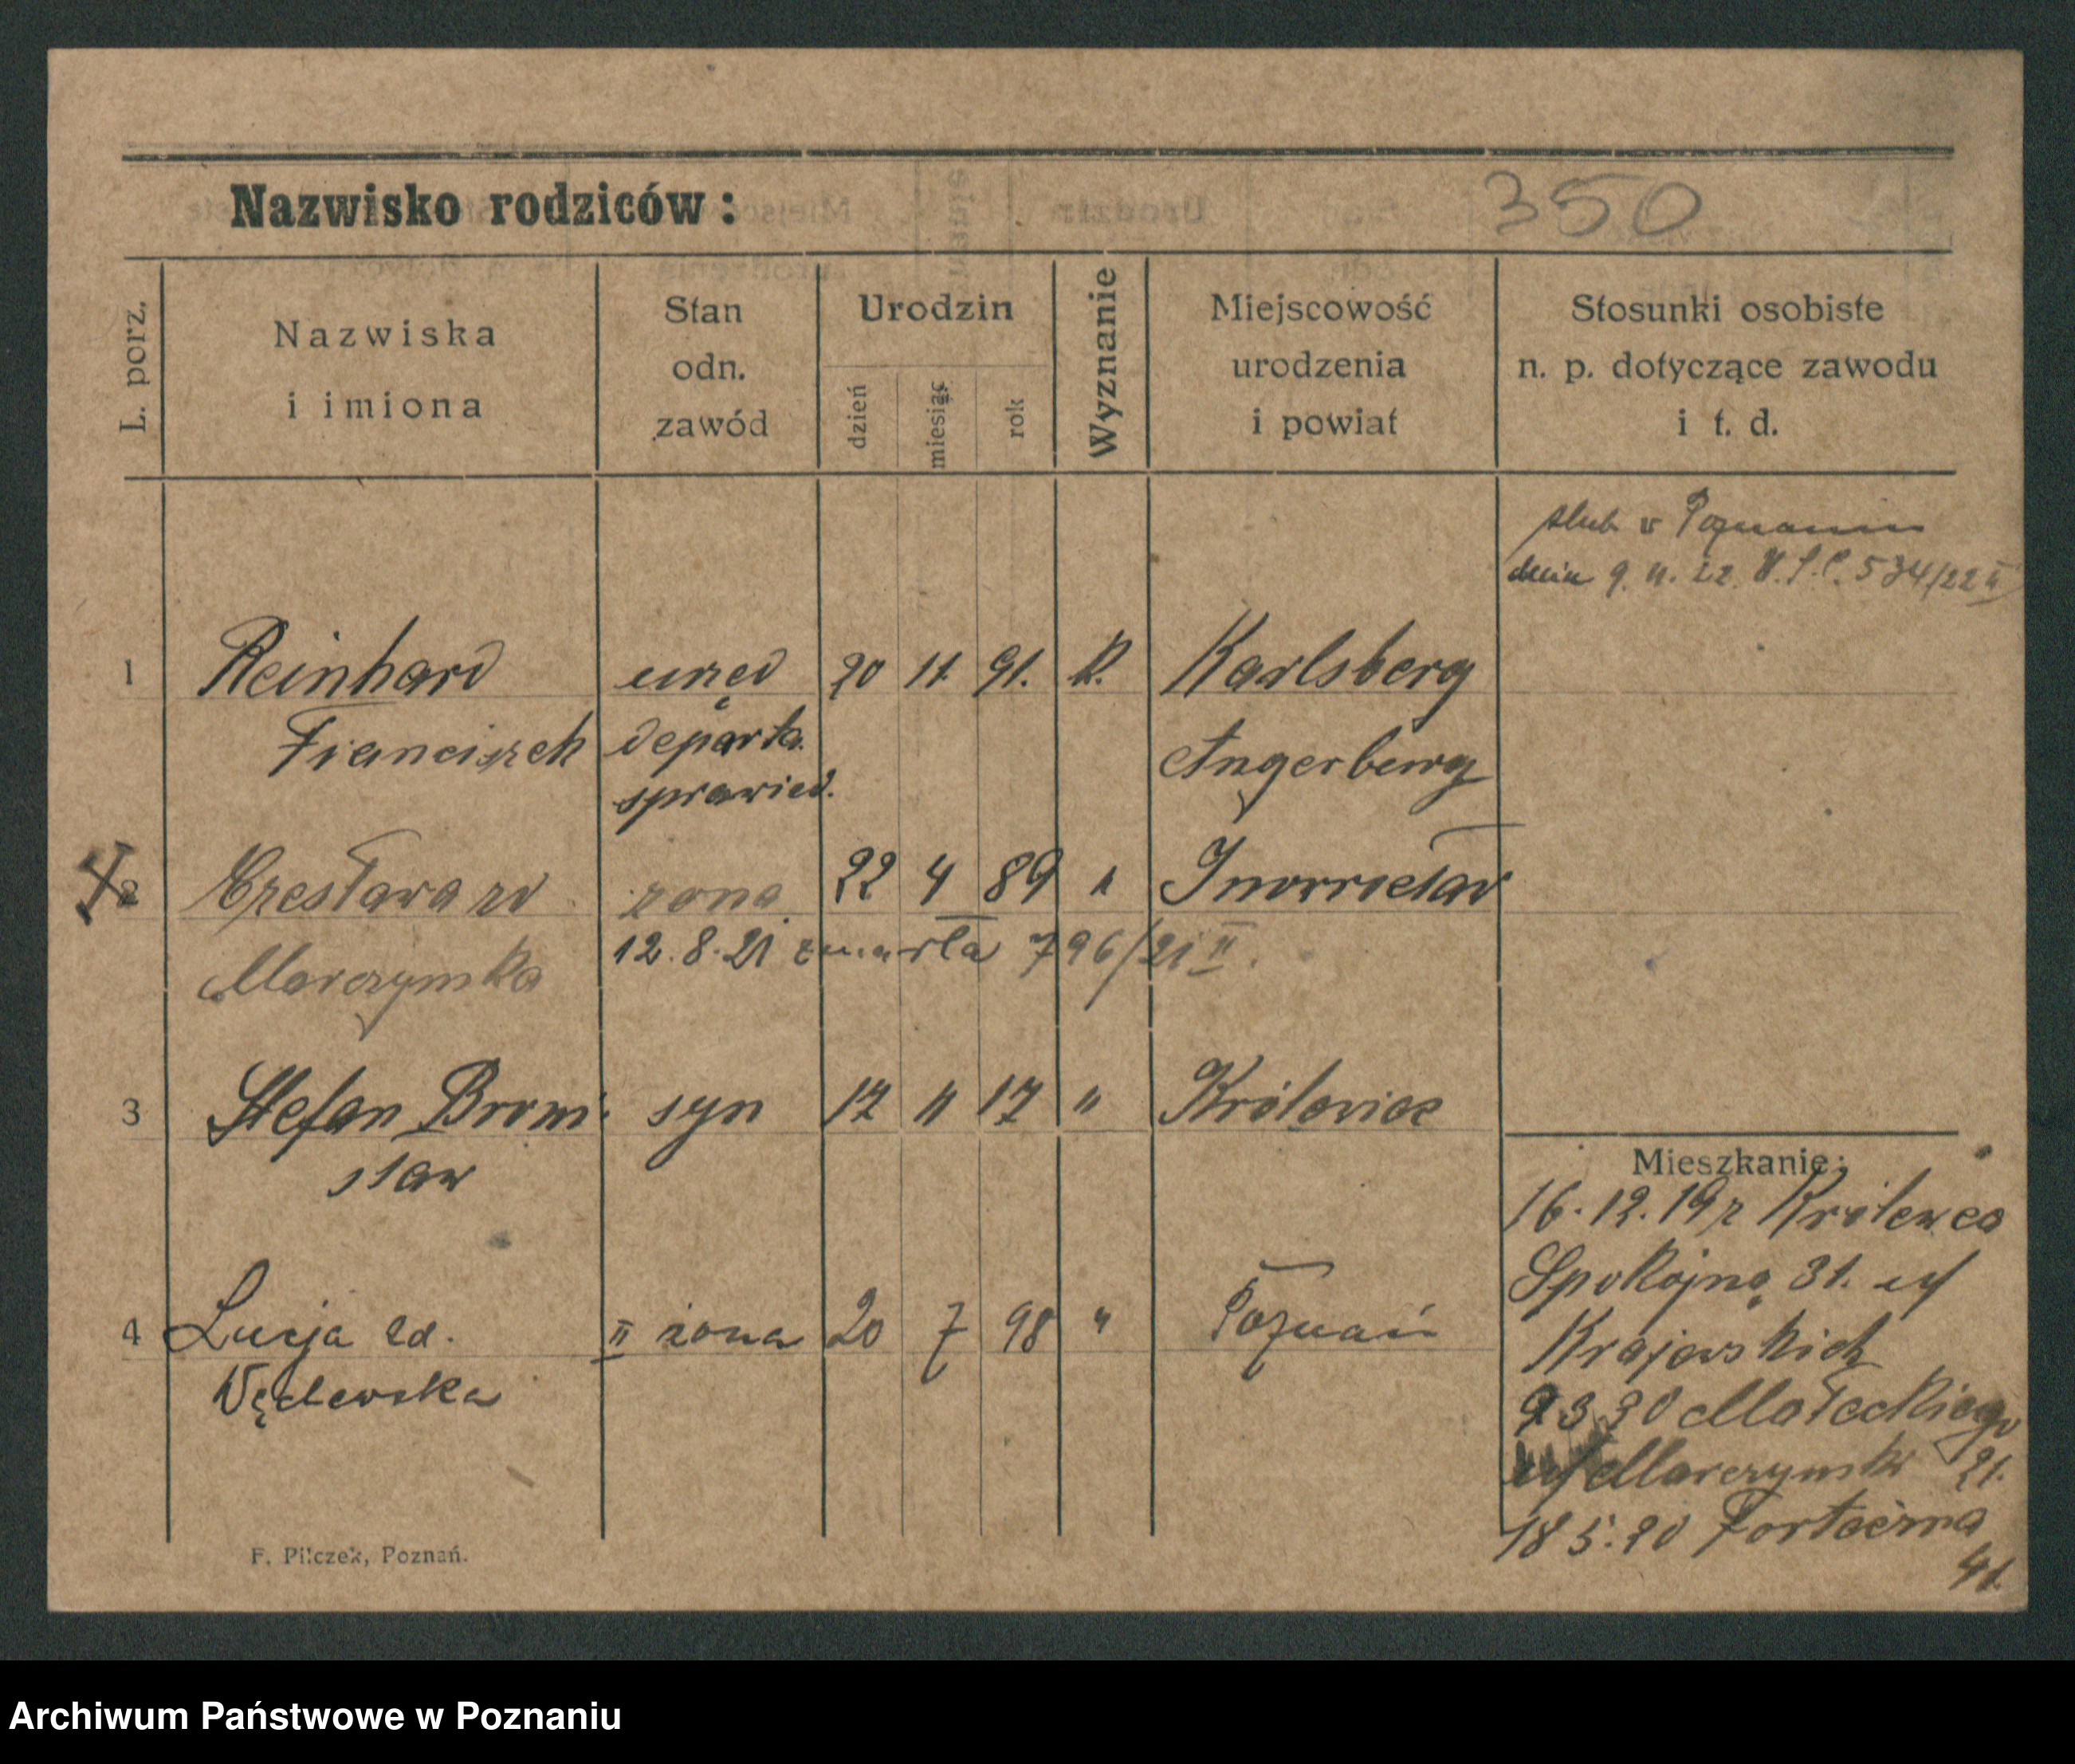 Nazwisko rodziców: 350
L. porz.
Nazwiska
i imiona
Stan
odn.
zawód
Urodzin
dzień
miesiąc
rok
Wyznanie
Miejscowość
urodzenia
i powiat
Stosunki osobiste
n. p. dotyczące zawodu
i t. d.
ślub w Poznaniu
dnia 9. 11. 22. U.S.C. 534/22 II
1 Reinhard urzęd 20 11 91. K. Karlsberg
Franciszek departa. Angerberg
sprawied.
2 Czesława zd żona 22 4 89 " Inowrocław
Marczyńska 12.8.21 zmarła 796/21 II.
3 Stefan Broni- syn 17 11 17 " Królewiec
sław
4 Łucja zd. II żona 20 7 98 " Poznań
Węclewska
Mieszkanie:
16.12.19 z Królewca
Spokojna 31. u/
Krajewskich
9 3 20 Małeckiego
u/ Marczyńsk 21.
18 5.20 Forteczna
41.
F. Pilczek, Poznań.
Archiwum Państwowe w Poznaniu